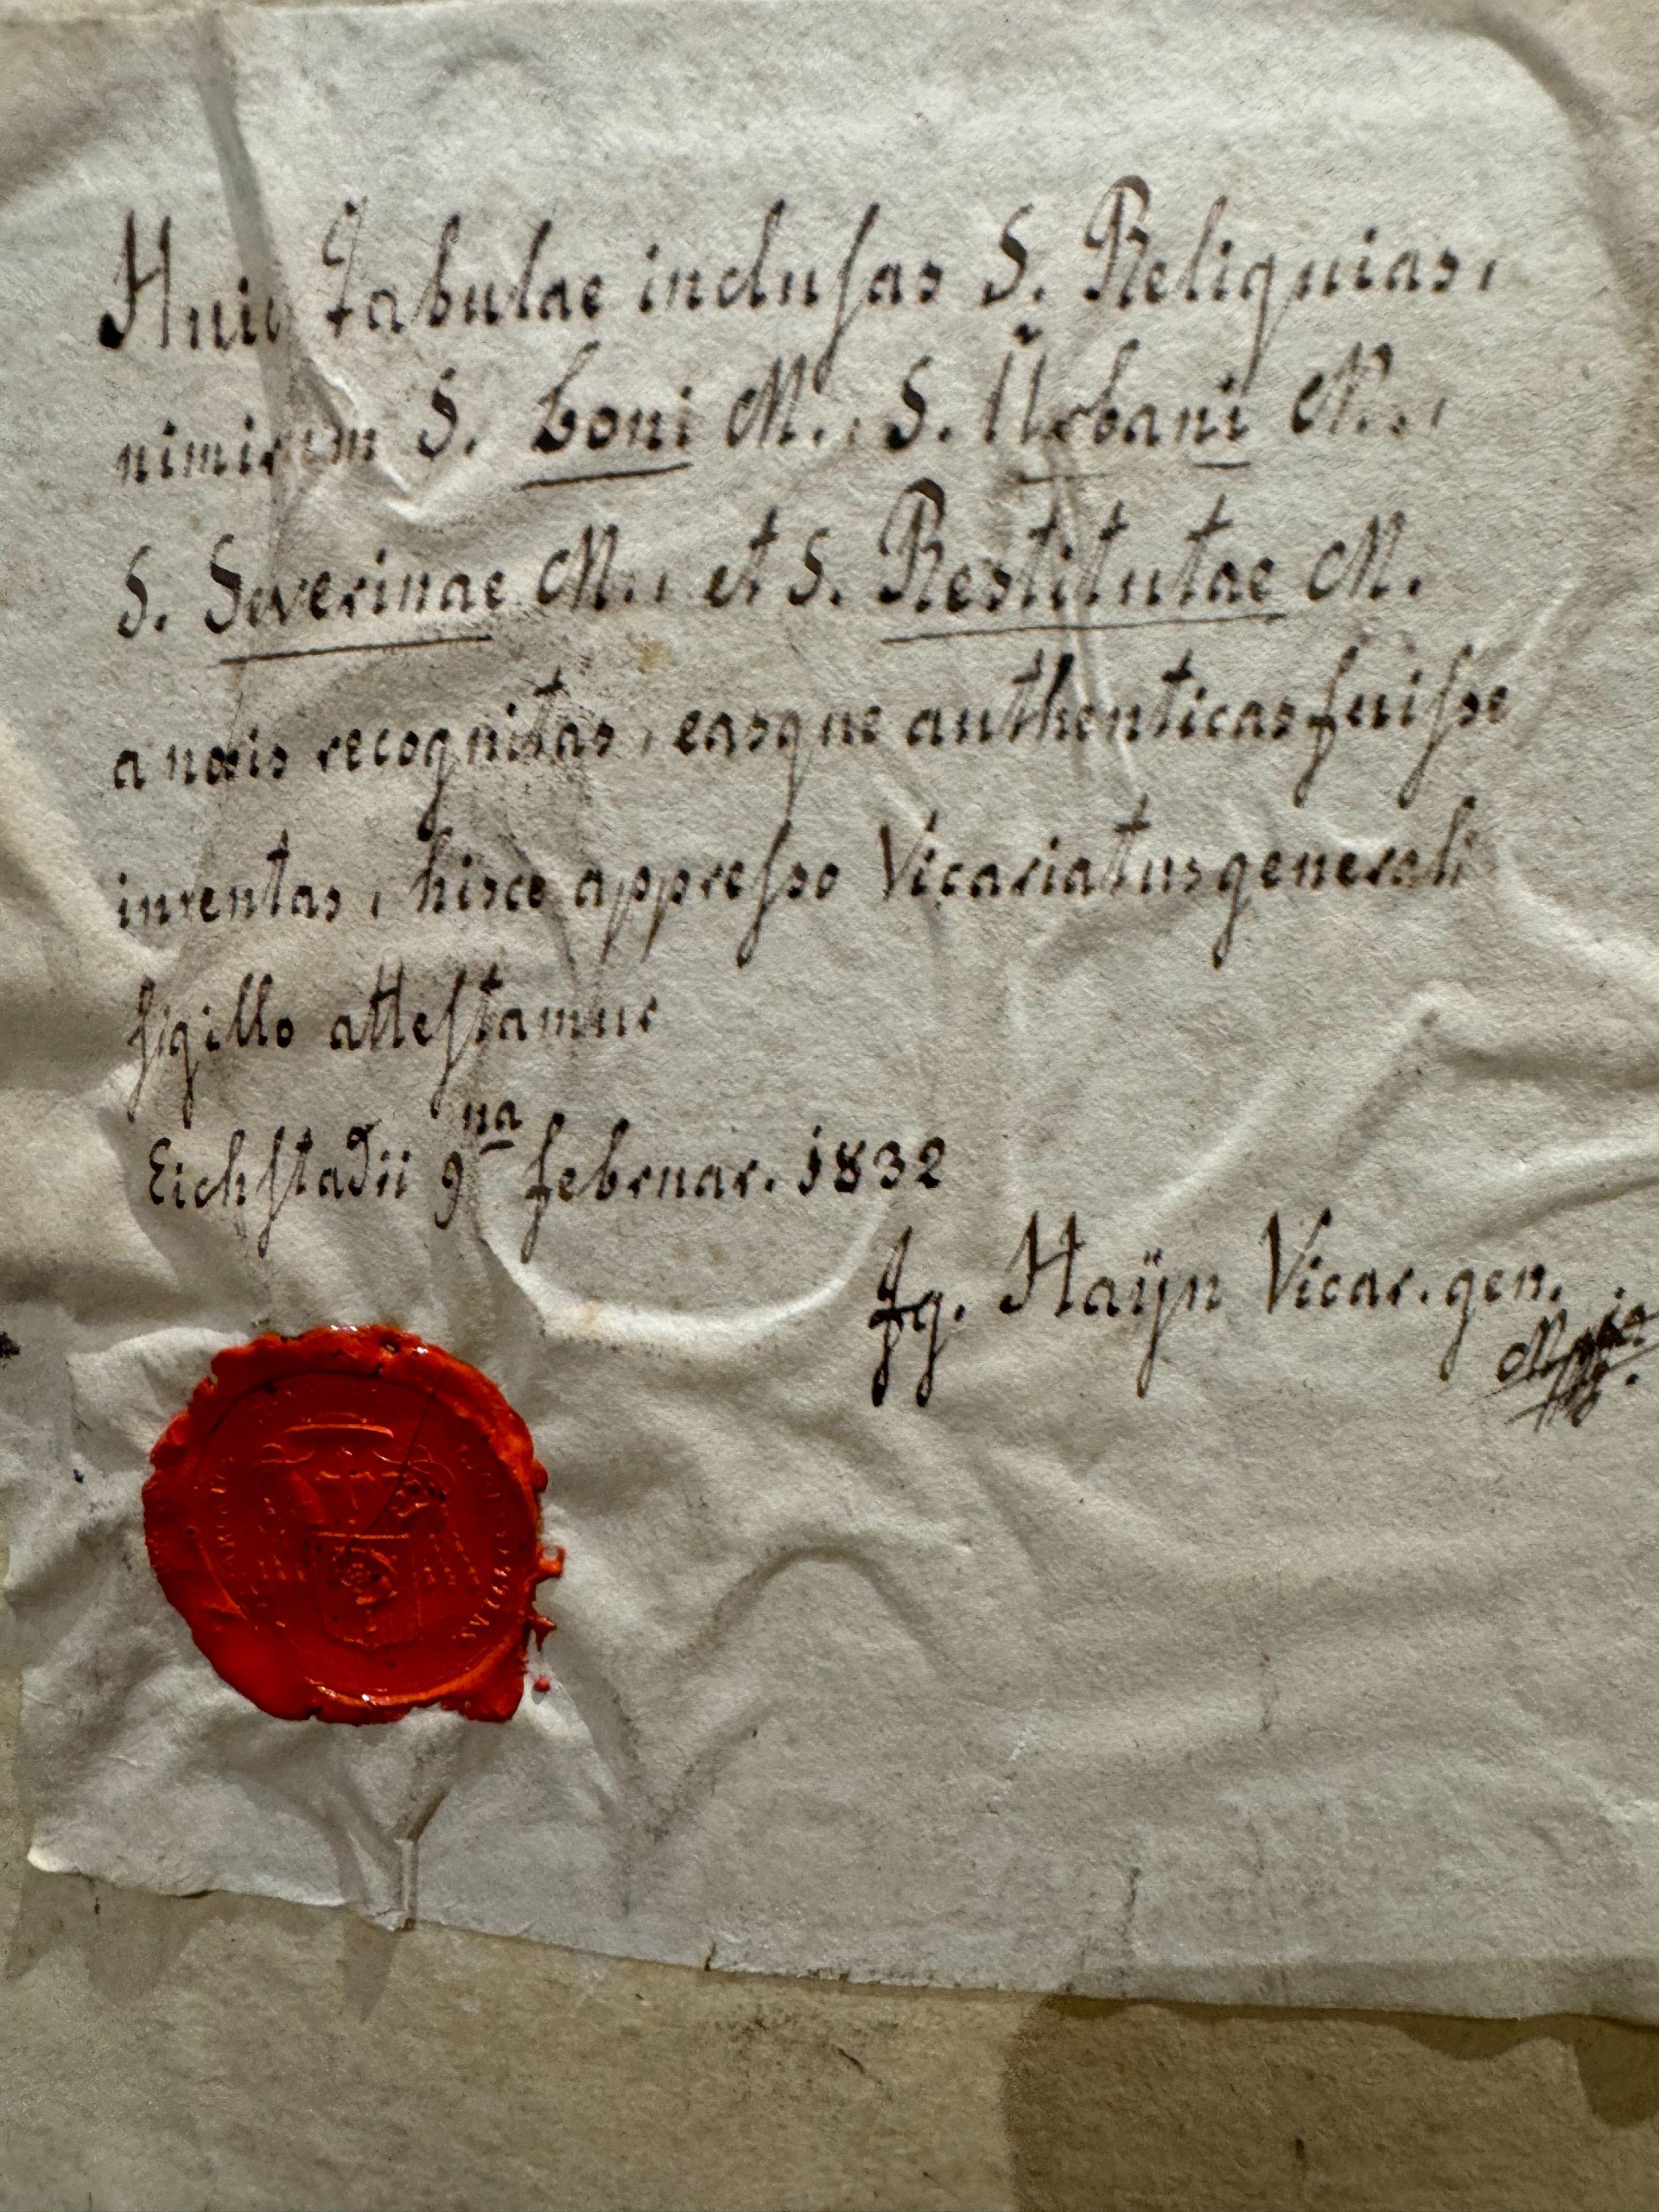 Huic Tabulae inclusas S. Reliquias,
nimirum S. Boni M., S. Urbani M.,
S. Severinae M., et S. Restitutae M.
a nobis recognitas, easque authenticas fuisse
inventas, hisce appresso Vicariatus generalis
sigillo attestamur
Eichstadii 9na februar. 1832
Ig. Haÿn Vicar. gen.